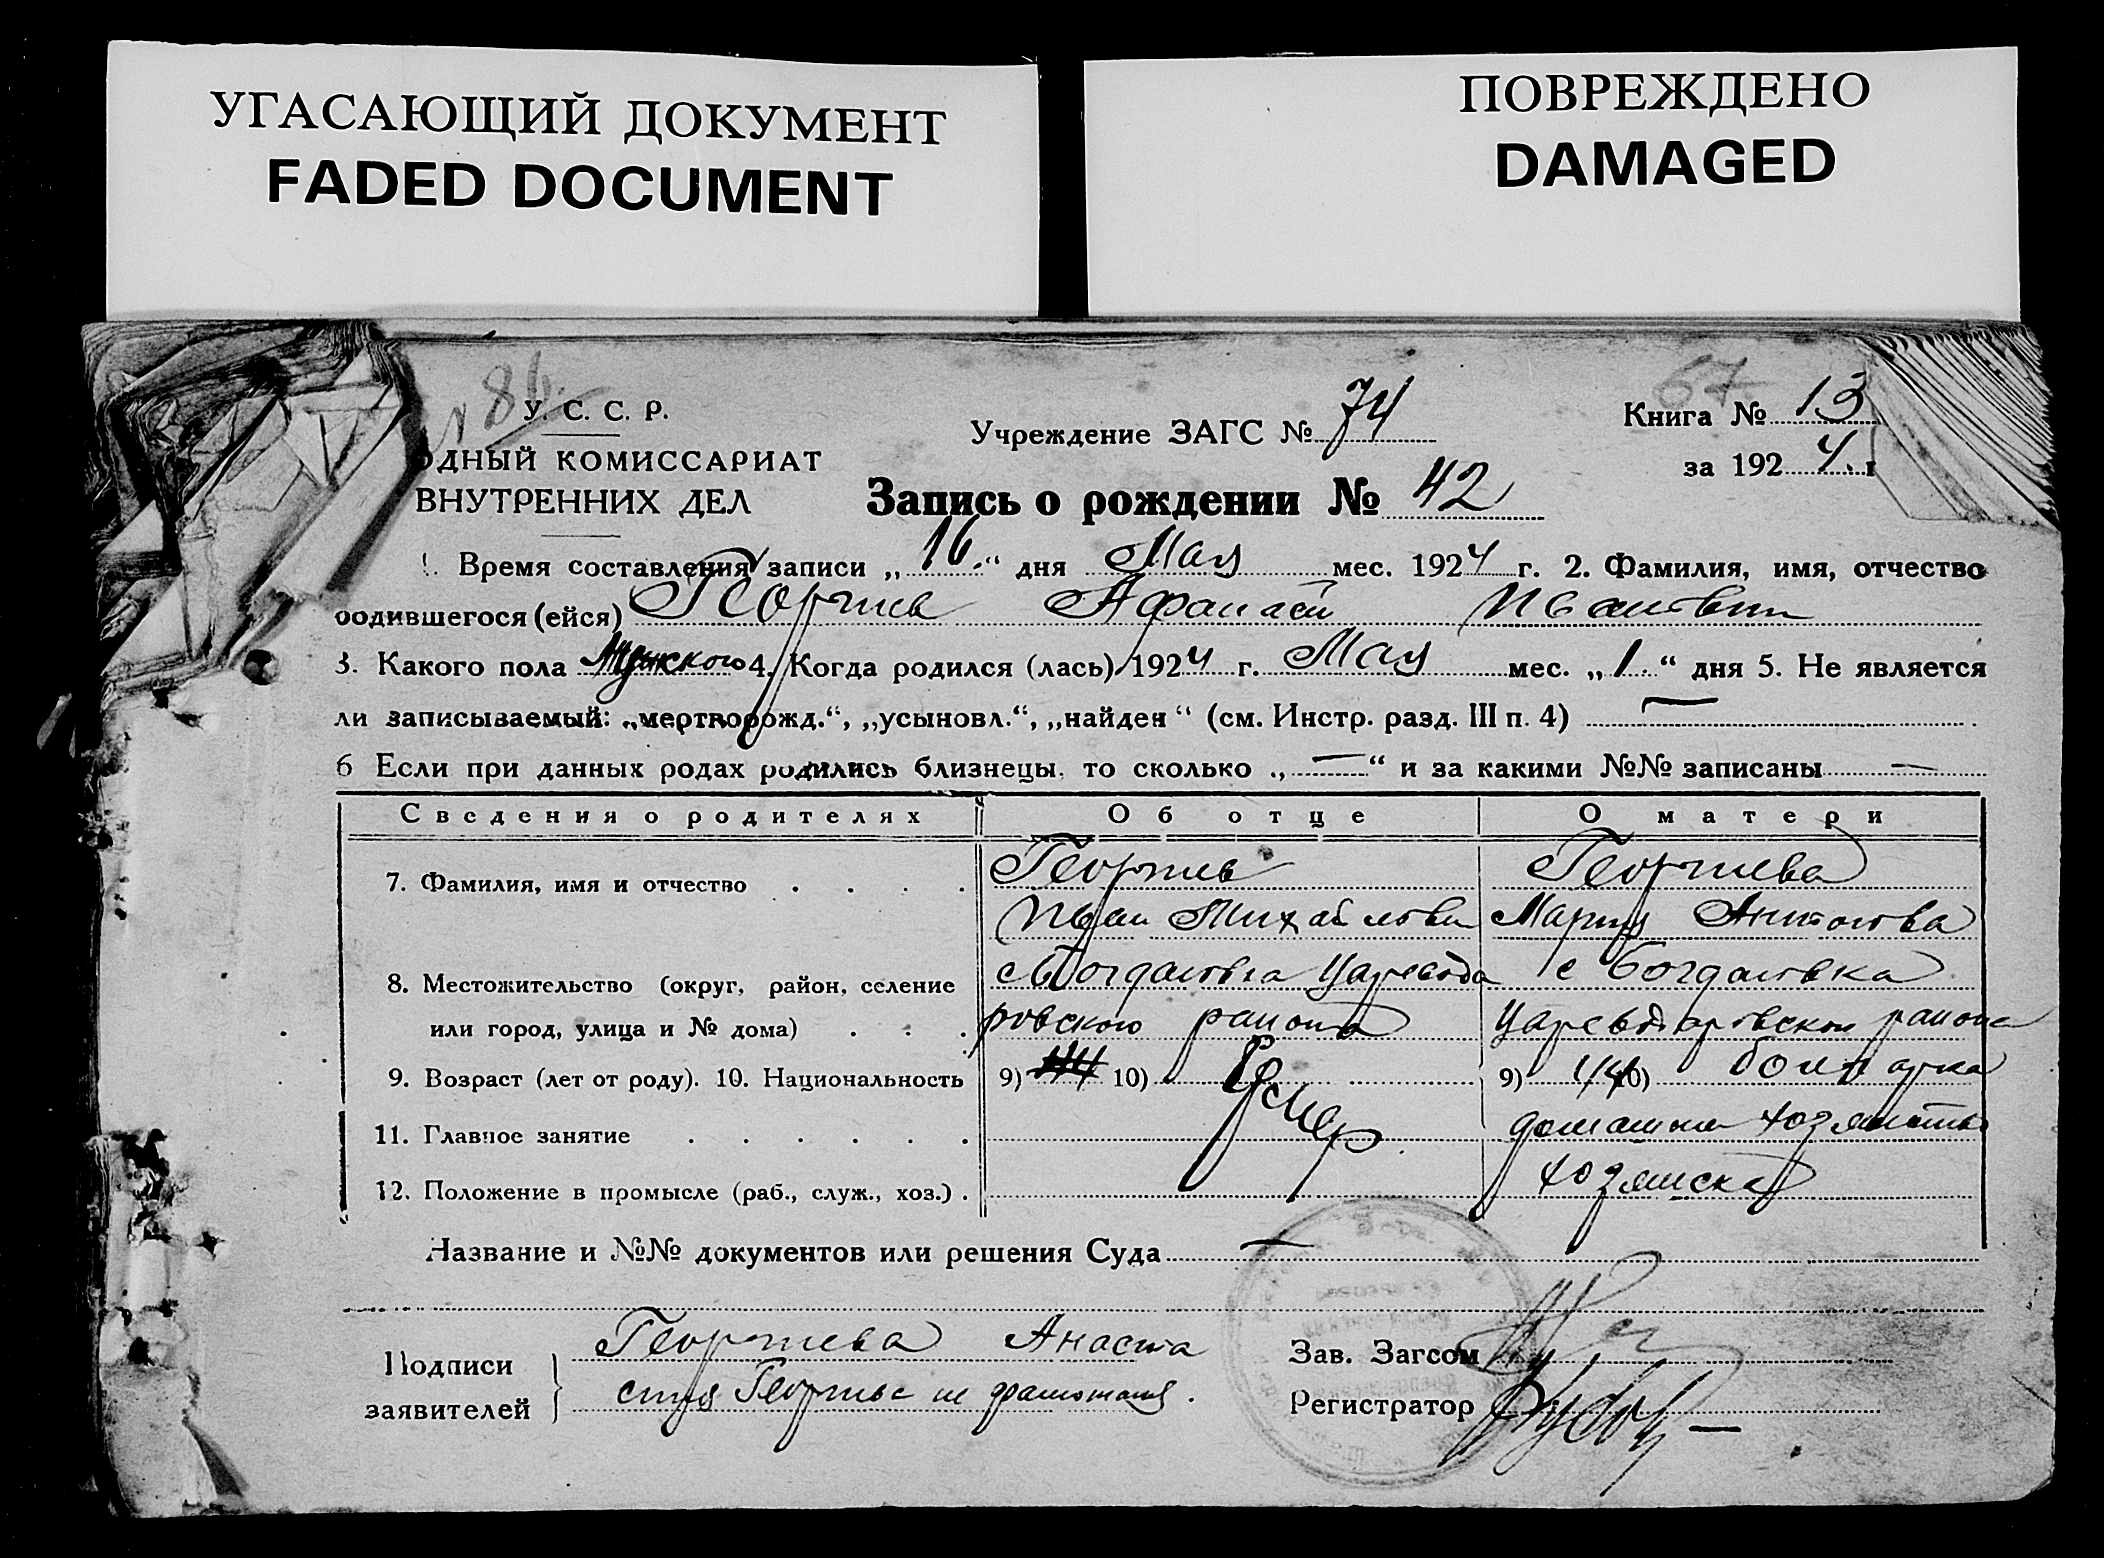 УГАСАЮЩИЙ ДОКУМЕНТ
FADED DOCUMENT
ПОВРЕЖДЕНО
DAMAGED
У. С. С. Р.
Учреждение ЗАГС № 74
67
Книга № 13
за 1924 г
ОДНЫЙ КОМИССАРИАТ
ВНУТРЕННИХ ДЕЛ
Запись о рождении № 42
1. Время составления записи „16.“ дня Мая мес. 1924 г. 2. Фамилия, имя, отчество
родившегося (ейся) Георгиев Афанасий Иванович
3. Какого пола Мужского 4. Когда родился (лась) 1924 г. Мая мес. „1.“ дня 5. Не является
ли записываемый: „мертворожд.“, „усыновл.“, „найден“ (см. Инстр. разд. III п. 4) —
6 Если при данных родах родились близнецы, то сколько „—“ и за какими №№ записаны —
Сведения о родителях Об отце О матери
7. Фамилия, имя и отчество Георгиев Георгиева
Иван Михайлови Мария Антонова
8. Местожительство (округ, район, селение с Богдановка Царевода с Богдановка
или город, улица и № дома) ровского района Царевдаровского района
9. Возраст (лет от роду). 10. Национальность 9) 44 10) Умер 9) 44 10) болгарка
11. Главное занятие домашнее
12. Положение в промысле (раб., служ., хоз.) хозяйска
Название и №№ документов или решения Суда —
Подписи заявителей Георгиева Анаста
сия Георгиева не грамотная.
Зав. Загсом
Регистратор